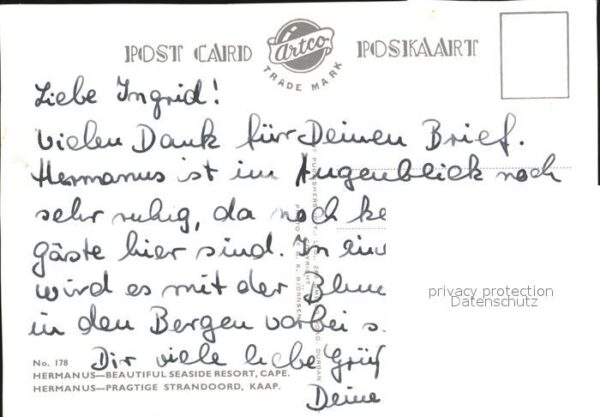 POST CARD Artco POSKAART
TRADE MARK
Liebe Ingrid!
vielen Dank für Deinen Brief.
Hermanus ist im Augenblick noch
sehr ruhig, da noch ke
gäste hier sind. In ein
wird es mit der Blum
in den Bergen vorbei s
Dir viele liebe Grüß
Deine
privacy protection
Datenschutz
No. 178
HERMANUS—BEAUTIFUL SEASIDE RESORT, CAPE.
HERMANUS—PRAGTIGE STRANDOORD, KAAP.